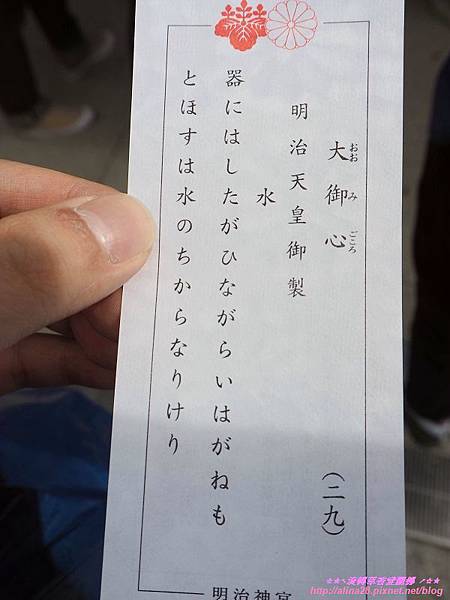 大御心
おおみごころ
(二九)
明治天皇御製
水
器にはしたがひながらいはがねも
とほすは水のちからなりけり
明治神宮
http://alina28.pixnet.net/blog